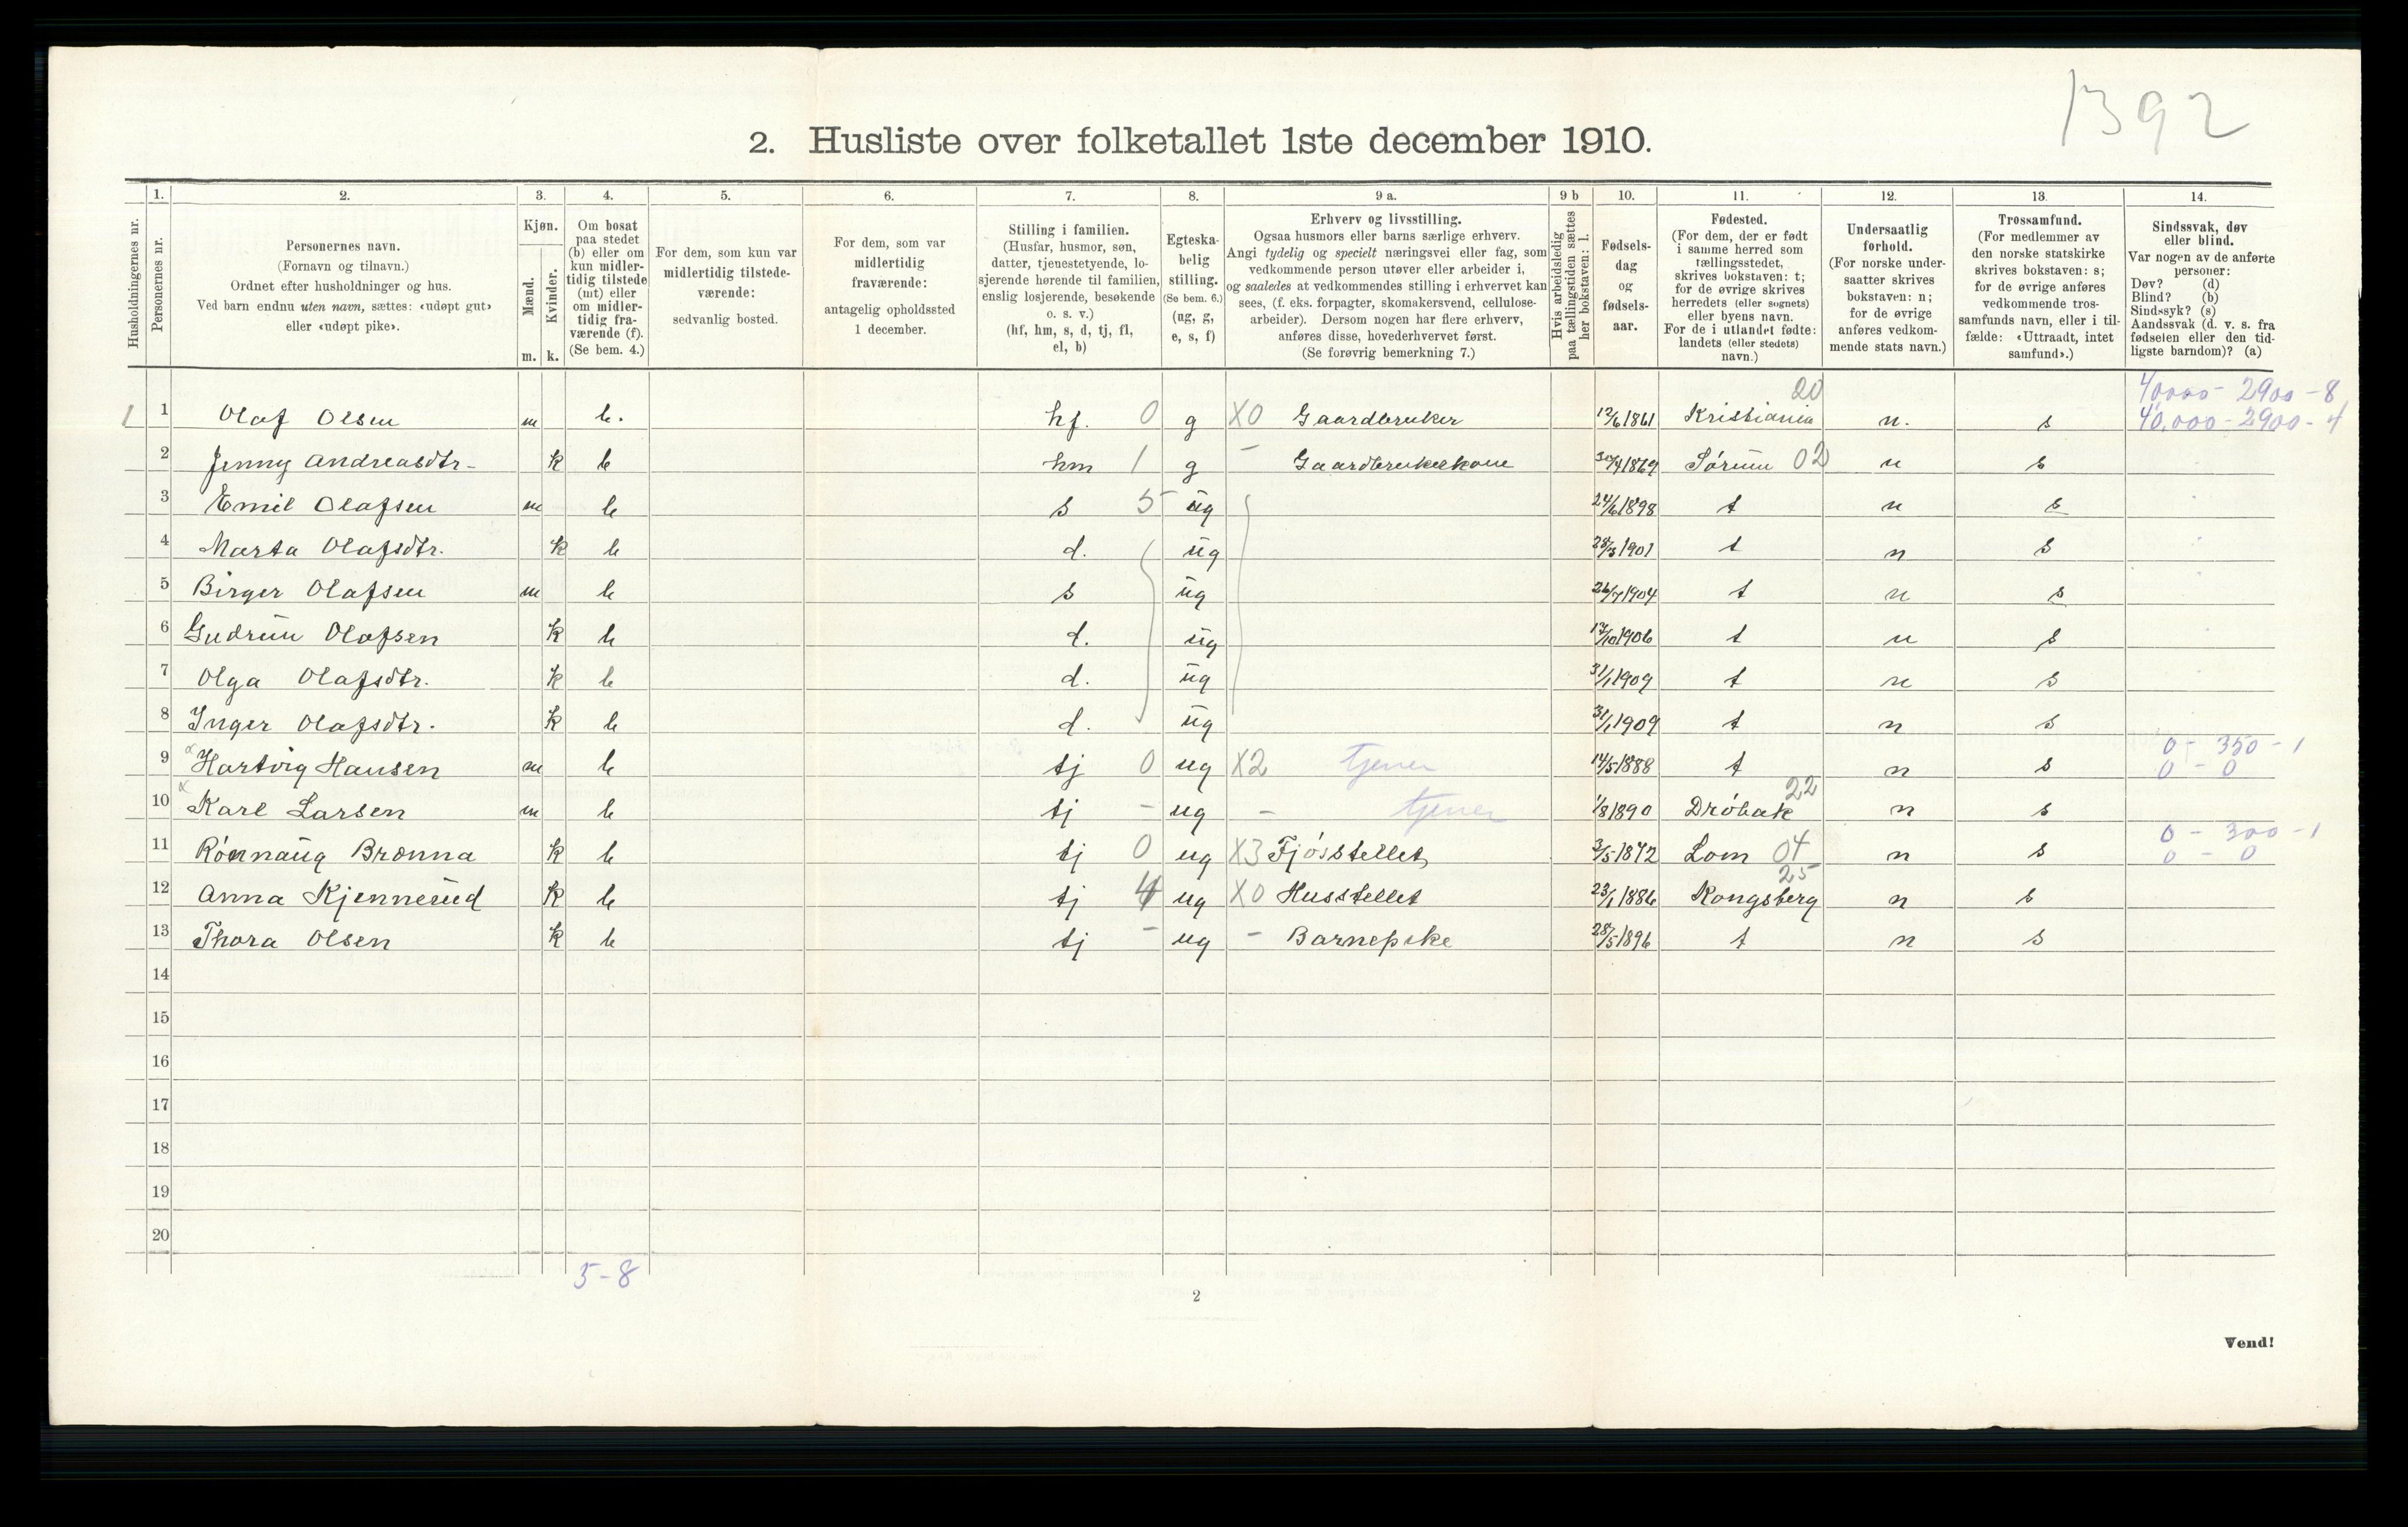 1392
2. Husliste over folketallet 1ste december 1910.
1. 2. 3. 4. 5. 6. 7. 8. 9 a. 9 b 10. 11. 12. 13. 14.
Husholdningernes nr.
Personernes nr.
Personernes navn.
(Fornavn og tilnavn.)
Ordnet efter husholdninger og hus.
Ved barn endnu uten navn, sættes: «udøpt gut»
eller «udøpt pike».
Kjøn.
Mænd.
Kvinder.
m. k.
Om bosat
paa stedet
(b) eller om
kun midler-
tidig tilstede
(mt) eller
om midler-
tidig fra-
værende (f).
(Se bem. 4.)
For dem, som kun var
midlertidig tilstede-
værende:
sedvanlig bosted.
For dem, som var
midlertidig
fraværende:
antagelig opholdssted
1 december.
Stilling i familien.
(Husfar, husmor, søn,
datter, tjenestetyende, lo-
sjerende hørende til familien,
enslig losjerende, besøkende
o. s. v.)
(hf, hm, s, d, tj, fl,
el, b)
Egteska-
belig
stilling.
(Se bem. 6.)
(ug, g,
e, s, f)
Erhverv og livsstilling.
Ogsaa husmors eller barns særlige erhverv.
Angi tydelig og specielt næringsvei eller fag, som
vedkommende person utøver eller arbeider i,
og saaledes at vedkommendes stilling i erhvervet kan
sees, (f. eks. forpagter, skomakersvend, cellulose-
arbeider). Dersom nogen har flere erhverv,
anføres disse, hovederhvervet først.
(Se forøvrig bemerkning 7.)
Hvis arbeidsledig
paa tællingstiden sættes
her bokstaven: l.
Fødsels-
dag
og
fødsels-
aar.
Fødested.
(For dem, der er født
i samme herred som
tællingsstedet,
skrives bokstaven: t;
for de øvrige skrives
herredets (eller sognets)
eller byens navn.
For de i utlandet fødte:
landets (eller stedets)
navn.)
Undersaatlig
forhold.
(For norske under-
saatter skrives
bokstaven: n;
for de øvrige
anføres vedkom-
mende stats navn.)
Trossamfund.
(For medlemmer av
den norske statskirke
skrives bokstaven: s;
for de øvrige anføres
vedkommende tros-
samfunds navn, eller i til-
fælde: «Uttraadt, intet
samfund».)
Sindssvak, døv
eller blind.
Var nogen av de anførte
personer:
Døv? (d)
Blind? (b)
Sindssyk? (s)
Aandssvak (d. v. s. fra
fødselen eller den tid-
ligste barndom)? (a)
20 40000 - 2900 - 8
1 1 Olaf Olsen m b. hf. 0 g X0 Gaardbruker 12/6 1861 Kristiania n. s 40.000 - 2900 - 4
2 Jenny Andreasdtr. k b hm 1 g - Gaardbrukerkone 30/4 1869 Sørum 02 n s
3 Emil Olafsen m b s 5 ug 24/6 1898 t n s
4 Marta Olafsdtr. k b d. ug 28/3 1901 t n s
5 Birger Olafsen m b s ug 26/7 1904 t n s
6 Gudrun Olafsen k b d. ug 17/10 1906 t n s
7 Olga Olafsdtr. k b d. ug 31/1 1909 t n s
8 Inger Olafsdtr. k b d. ug 31/1 1909 t n s
0 - 350 - 1
9 Hartvig Hansen m b tj 0 ug X2 tjener 14/5 1888 t n s 0 - 0
22
10 Karl Larsen m b tj - ug - tjener 1/8 1890 Drøbak n s
0 - 300 - 1
11 Rønnaug Brønna k b tj 0 ug X3 Fjøsstellet 3/5 1872 Lom 04 n s 0 - 0
25
12 Anna Kjennerud k b tj 4 ug X0 Husstellet 23/1 1886 Kongsberg n s
13 Thora Olsen k b tj - ug - Barnepike 28/5 1896 t n s
14
15
16
17
18
19
20
5-8
2
Vend!